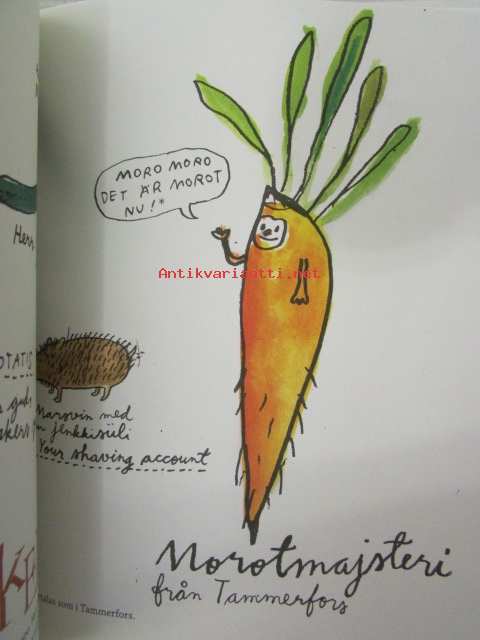 MORO MORO
DET ÄR MOROT
NU!*
Antikvariaatti.net
Herr
Marsvin med
jenkkisiili
Your shaving account
Morotmajsteri
från Tammerfors
talas som i Tammerfors.